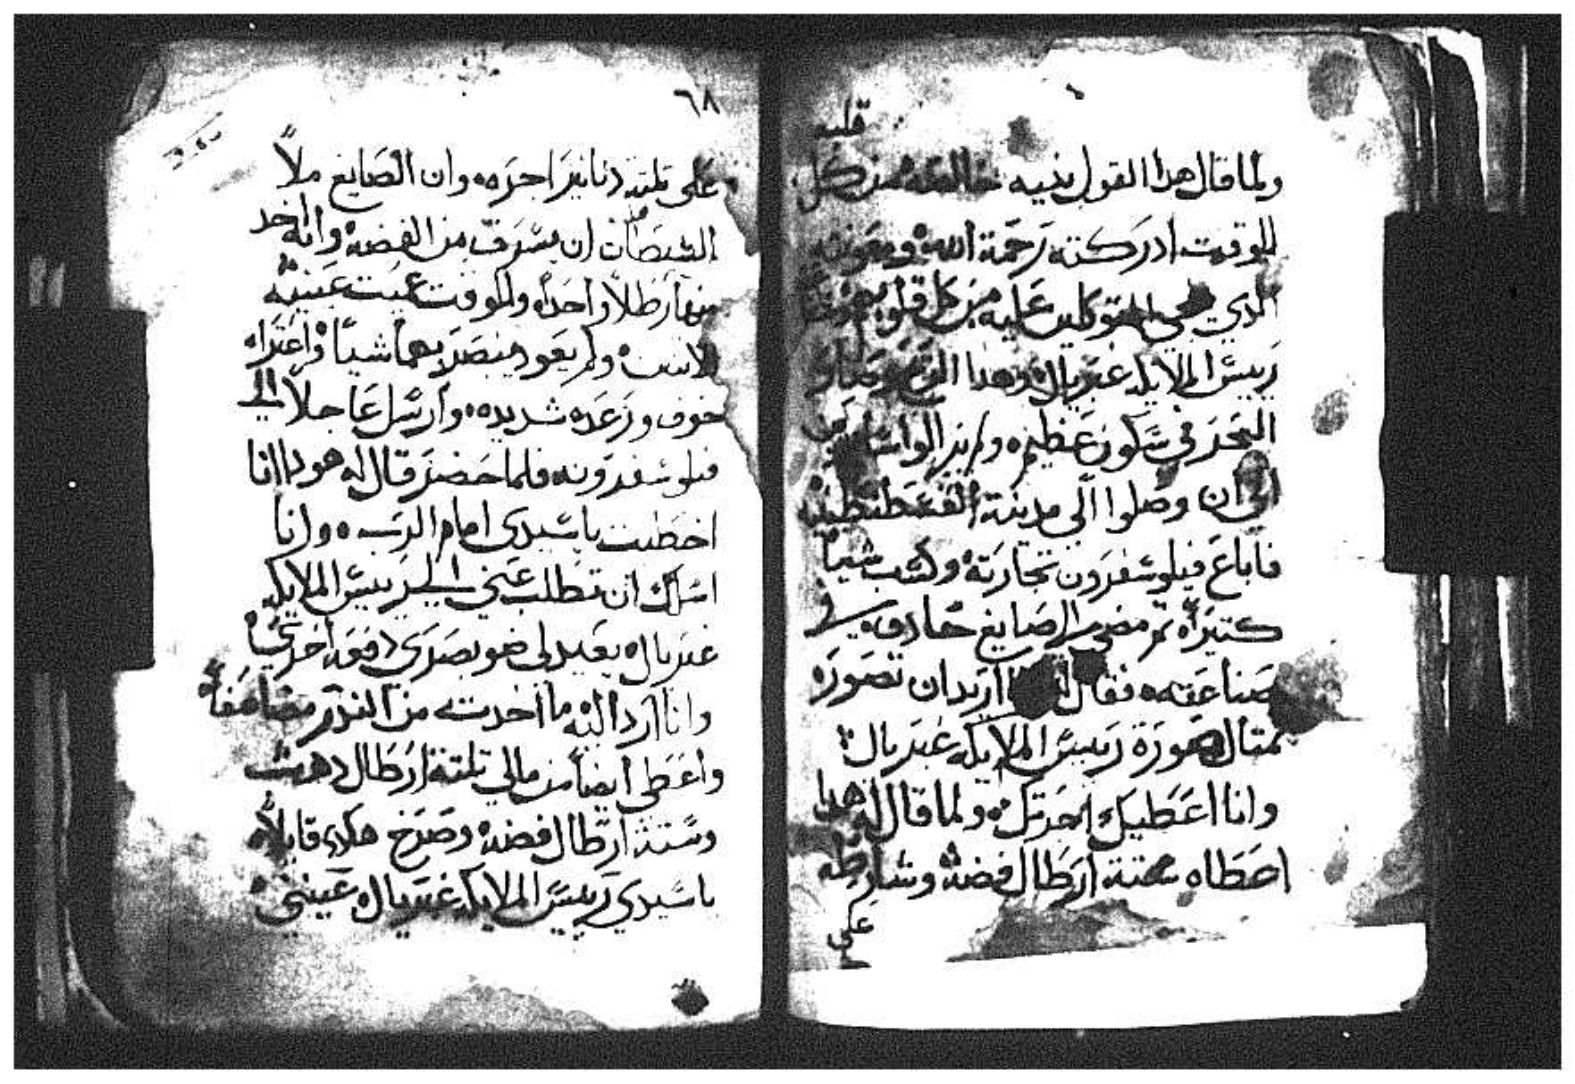 قلبه
ولما قال هدا القول بنيه خالصه من كل
للوقت ادركته رحمة الله ومعونته
الدي ينجي المتوكلين عليه من كل قلوبهم
رييس الملايكه غبريال وهدا الريح وصار
البحر في سكون عظيم ولم يزالوا سايرين
الي ان وصلوا الي مدينة القسطنطينيه
فاباع فيلوسفرون تجارته وكسب شيا
كتيراً تم مضي الي صايغ حادق في
صناعته فقال له اريد ان تصور
تمتال صورة رييس الملايكه غبريال
وانا اعطيك اجرتك ولما قال له هدا
اعطاه ستة ارطال فضه وشارطه
علي
٦٨
علي تلتة دنانير اجره وان الصايغ ملاً
الشيطان ان يسرق من الفضه وانه اخد
منها رطلاً واحداً وللوقت عميت عينيه
الاتنين ولم يعود يبصر بهما شياً واعتراه
خوف ورعده شديده وارسل عاجلاً الي
فيلوسفرون فلما حضر قال له هودا انا
اخطيت ياسيدي امام الرب وانا
اسلك ان تطلب عني الي رييس الملايكه
غبريال يعيد لي ضو بصري دفعه اخري
وانا ارد اليه ما اخدت من الفضه مضاعفاً
واعطي ايضاً من مالي تلتة ارطال دهب
وستة ارطال فضه وصرخ هكدا قايلاً
ياسيدي رييس الملايكه غبريال عينني